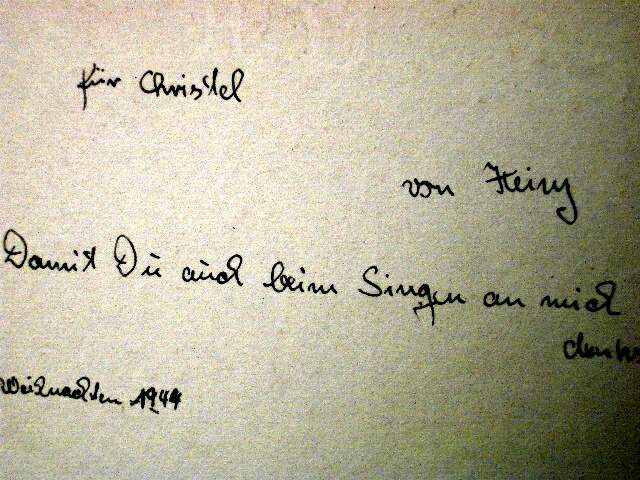 für Christel
von Heinz
Damit Du auch beim Singen an mich
denks
Weihnachten 1944